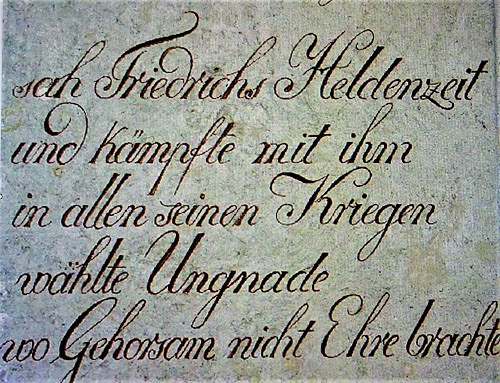 sah Friedrichs Heldenzeit
und kämpfte mit ihm
in allen seinen Kriegen
wählte Ungnade
wo Gehorsam nicht Ehre brachte